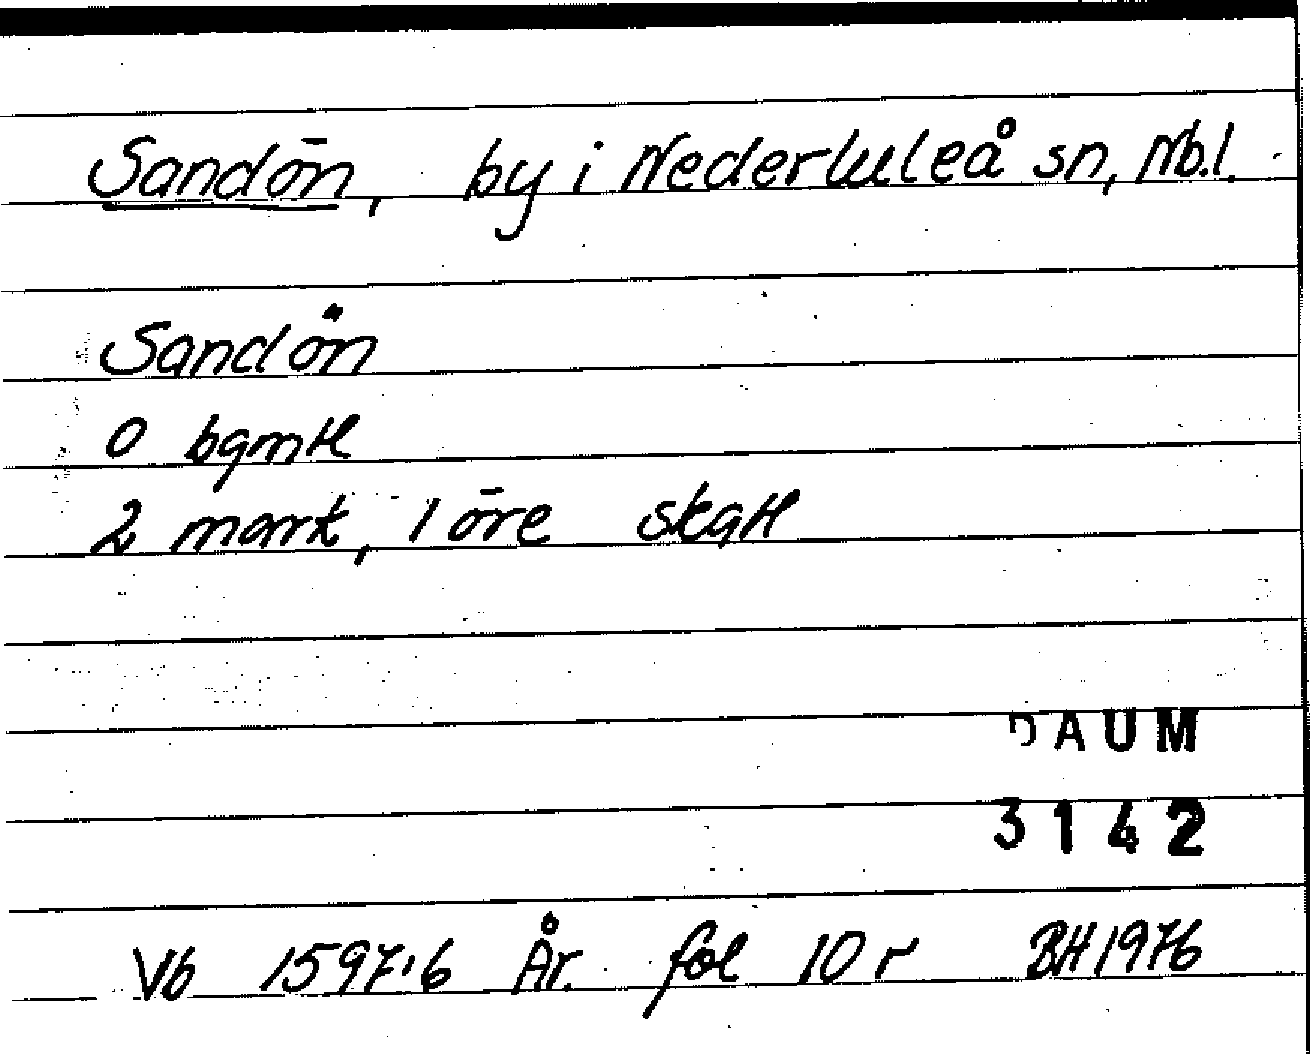 Sandön, by i Nederluleå sn, Nb.l.
Sandön
0 bgmtl
2 mark, 1 öre skatt
DAUM
3142
Vb 1597:6 År. fol 10 r BH 1976